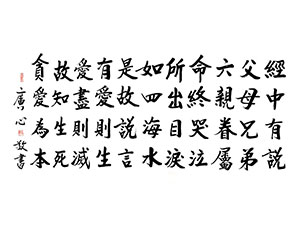 經中有說
父母兄弟
六親眷屬
命終哭泣
所出目淚
如四海水
是故說言
有愛則生
愛盡則滅
故知生死
貪愛為本
廣心敬書